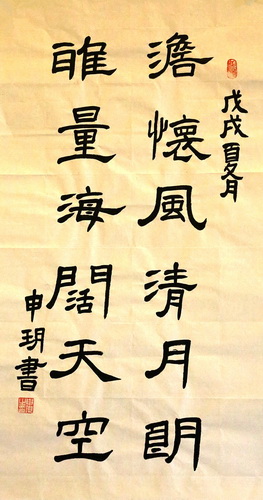 戊戌夏月
澹懷風清月朗
雅量海闊天空
申玥書